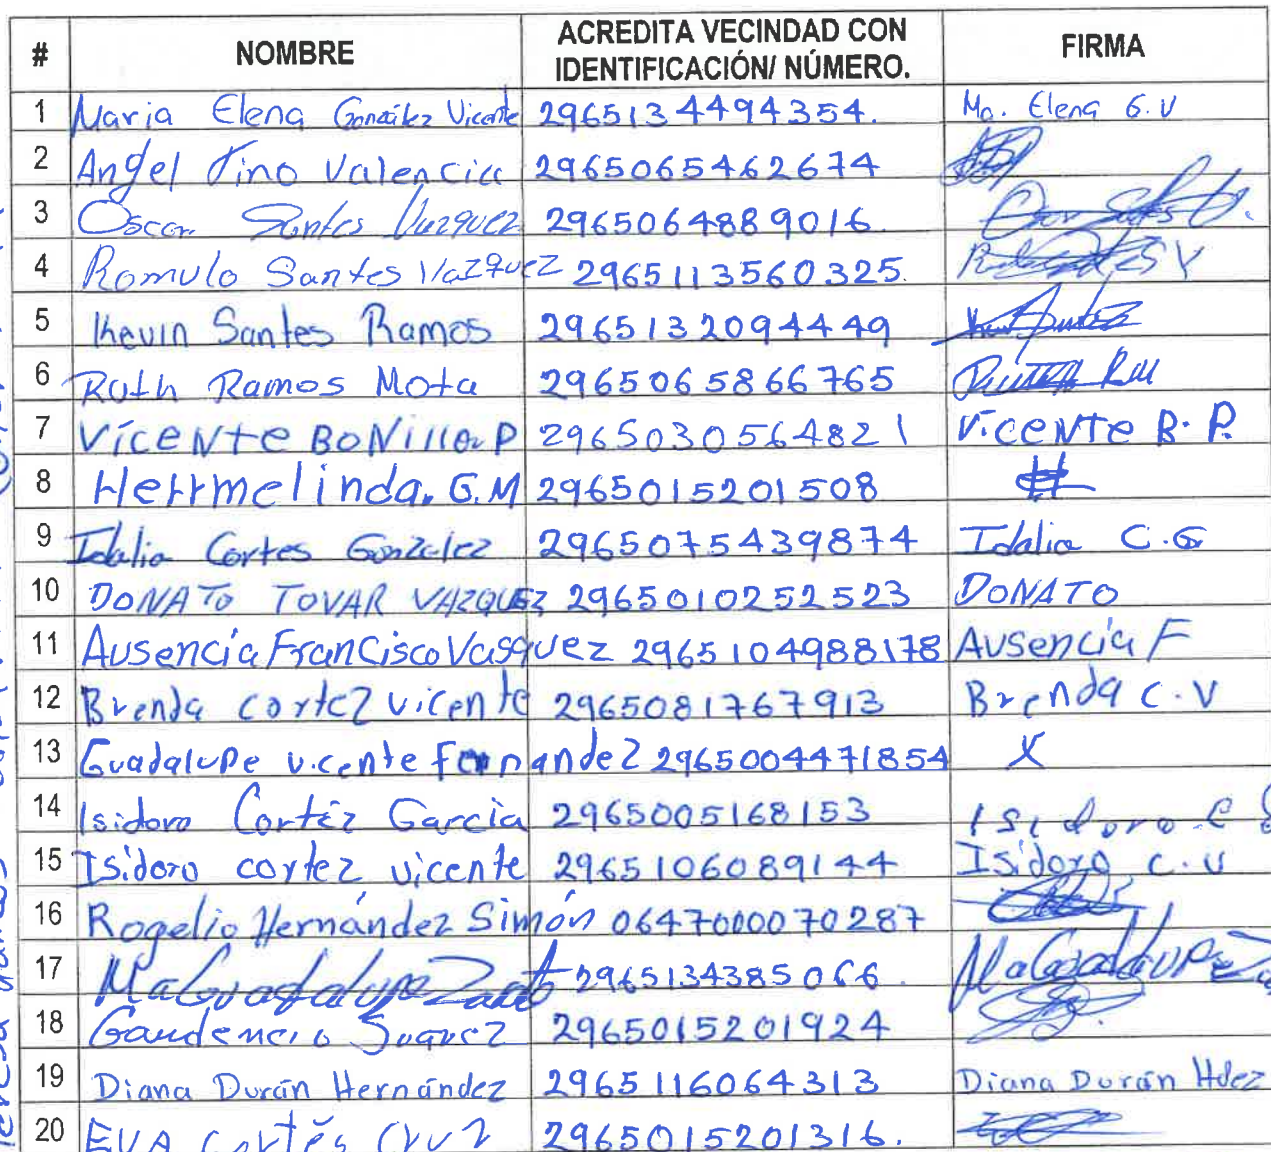 # NOMBRE ACREDITA VECINDAD CON IDENTIFICACIÓN/ NÚMERO. FIRMA
1 Maria Elena González Vicente 2965134494354. Ma. Elena G. V
2 Angel Tino Valencia 2965065462674
3 Oscar Santes Vazquez 2965064889016
4 Romulo Santes Vazquez 2965113560325.
5 Kevin Santes Ramos 2965132094449
6 Ruth Ramos Mota 2965065866765
7 Vicente Bonilla P 2965030564821 Vicente B. P.
8 Hermelinda. G.M 2965015201508
9 Idalia Cortes Gonzalez 2965075439874 Idalia C.G
10 DONATO TOVAR VAZQUEZ 2965010252523 DONATO
11 Ausencia Francisco Vasquez 2965104988178 Ausencia F
12 Brenda cortez vicente 2965081767913 Brenda C.V
13 Guadalupe vicente Fernandez 2965004471854 X
14 Isidoro Cortéz García 2965005168153 Isidoro C
15 Isidoro cortez vicente 2965106089144 Isidoro C.V
16 Rogelio Hernández Simón 0647000070287
17 Ma Guadalupe 2965134385066. Ma Guadalupe
18 Gaudencio Suarez 2965015201924
19 Diana Durán Hernández 2965116064313 Diana Durán Hdez
20 EVA Cortés Cruz 2965015201316.